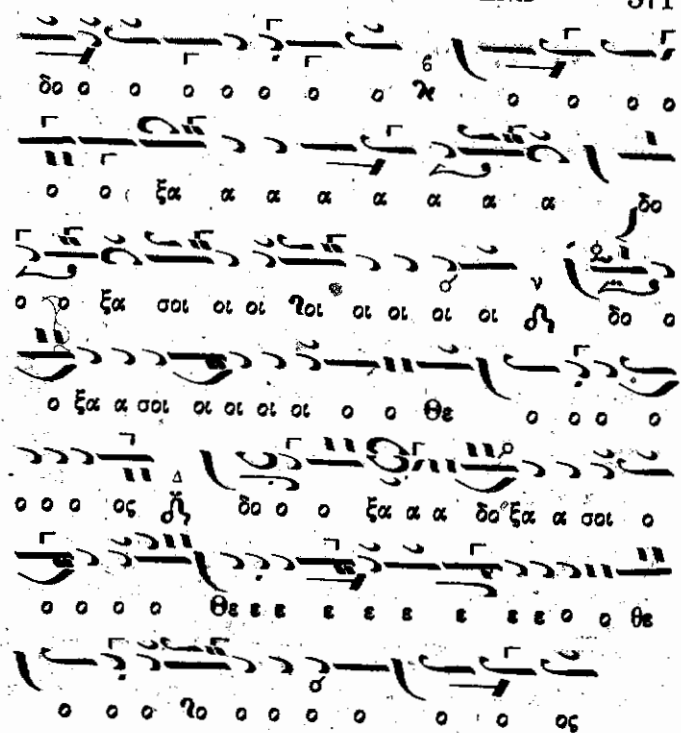 371
δο ο ο ο ο ο ο ο ο ο ο ο
ο ο ξα α α α α α α α δο
ο ο ξα σοι οι οι οι οι οι οι δο ο
ο ξα α σοι οι οι οι οι ο ο Θε ο ο ο ο
ο ο ο ος Δ δο ο ο ξα α α δο ξα α σοι ο
ο ο ο ο Θε ε ε ε ε ε ε ε ε ο ο θε
ο ο ο ο ο ο ο ο ο ος